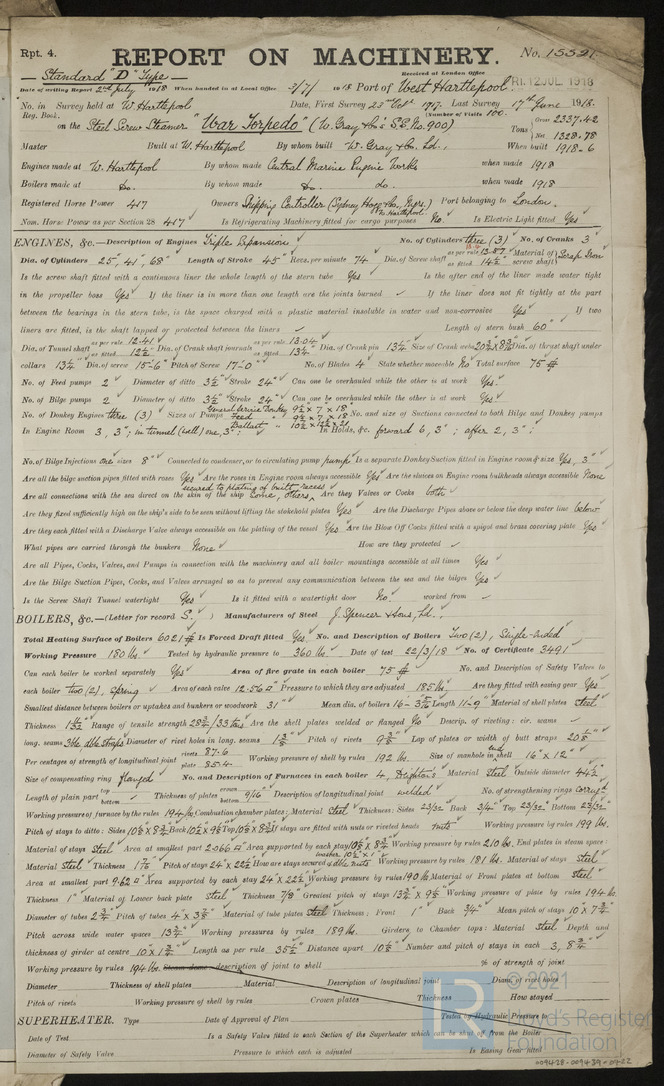 Rpt. 4. REPORT ON MACHINERY. No. 15521
Standard "D" Type
Received at London Office
Date of writing Report 2nd July 1918 When handed in at Local Office 3/7/1918 Port of West Hartlepool FRI. 12 JUL 1918
No. in Survey held at W. Hartlepool Date, First Survey 23rd Octr 1917. Last Survey 17th June 1918.
Reg. Book. (Number of Visits 100.
on the Steel Screw Steamer "War Torpedo" (W. Gray & Co's S.S. No. 900) Tons Gross 2337.42 Net 1328.78
Master Built at W. Hartlepool By whom built W. Gray & Co. Ld., When built 1918-6
Engines made at W. Hartlepool By whom made Central Marine Engine Works when made 1918
Boilers made at do. By whom made do. do. when made 1918
Registered Horse Power 417 Owners Shipping Controller (Sydney Hogg & Co., Mgrs.) W. Hartlepool Port belonging to London.
Nom. Horse Power as per Section 28 417 Is Refrigerating Machinery fitted for cargo purposes No. Is Electric Light fitted Yes
ENGINES, &c.—Description of Engines Triple Expansion No. of Cylinders three (3) No. of Cranks 3
Dia. of Cylinders 25", 41", 68" Length of Stroke 45" Revs. per minute 74 Dia. of Screw shaft as per rule 13.87 as fitted 14½" Material of screw shaft Scrap Iron
Is the screw shaft fitted with a continuous liner the whole length of the stern tube Yes Is the after end of the liner made water tight
in the propeller boss Yes If the liner is in more than one length are the joints burned If the liner does not fit tightly at the part
between the bearings in the stern tube, is the space charged with a plastic material insoluble in water and non-corrosive Yes If two
liners are fitted, is the shaft lapped or protected between the liners Length of stern bush 60"
Dia. of Tunnel shaft as per rule 12.41 as fitted 12½" Dia. of Crank shaft journals as per rule 13.04 as fitted 13¼" Dia. of Crank pin 13¼" Size of Crank webs 20½ x 8¾ Dia. of thrust shaft under
collars 13¼" Dia. of screw 15-6" Pitch of Screw 17-0" No. of Blades 4 State whether moveable No Total surface 75
No. of Feed pumps 2 Diameter of ditto 3½" Stroke 24" Can one be overhauled while the other is at work Yes.
No. of Bilge pumps 2 Diameter of ditto 3½" Stroke 24" Can one be overhauled while the other is at work Yes
No. of Donkey Engines three (3) Sizes of Pumps General service Donkey 9½ x 7 x 18 Feed 9½ x 7 x 18 Ballast 10½ x 12½ x 21 No. and size of Suctions connected to both Bilge and Donkey pumps
In Engine Room 3, 3"; in tunnel (well) one, 3"; In Holds, &c. forward 6, 3"; after 2, 3";
No. of Bilge Injections one sizes 8" Connected to condenser, or to circulating pump pump Is a separate Donkey Suction fitted in Engine room & size Yes, 3"
Are all the bilge suction pipes fitted with roses Yes Are the roses in Engine room always accessible Yes Are the sluices on Engine room bulkheads always accessible None
Are all connections with the sea direct on the skin of the ship Some, others secured to plating of built recess Are they Valves or Cocks both
Are they fixed sufficiently high on the ship's side to be seen without lifting the stokehold plates Yes Are the Discharge Pipes above or below the deep water line below
Are they each fitted with a Discharge Valve always accessible on the plating of the vessel Yes Are the Blow Off Cocks fitted with a spigot and brass covering plate Yes
What pipes are carried through the bunkers None How are they protected
Are all Pipes, Cocks, Valves, and Pumps in connection with the machinery and all boiler mountings accessible at all times Yes
Are the Bilge Suction Pipes, Cocks, and Valves arranged so as to prevent any communication between the sea and the bilges Yes
Is the Screw Shaft Tunnel watertight Yes Is it fitted with a watertight door No. worked from
BOILERS, &c.—(Letter for record S.) Manufacturers of Steel J. Spencer & Sons, Ld.
Total Heating Surface of Boilers 6021 Is Forced Draft fitted Yes No. and Description of Boilers Two (2), Single-ended
Working Pressure 180 lbs Tested by hydraulic pressure to 360 lbs. Date of test 22/3/18 No. of Certificate 3491
Can each boiler be worked separately Yes Area of fire grate in each boiler 75 No. and Description of Safety Valves to
each boiler Two (2), Spring Area of each valve 12.56 Pressure to which they are adjusted 185 lbs, Are they fitted with easing gear Yes
Smallest distance between boilers or uptakes and bunkers or woodwork 31" Mean dia. of boilers 16-3½" Length 11-9" Material of shell plates Steel
Thickness Range of tensile strength 28¾/33 tons Are the shell plates welded or flanged No Descrip. of riveting: cir. seams
long. seams Diameter of rivet holes in long. seams 1⅜ Pitch of rivets 9⅜ Lap of plates or width of butt straps 20
Per centages of strength of longitudinal joint rivets 87.6 plate 85.4 Working pressure of shell by rules 192 lbs. Size of manhole in end shell 16" x 12"
Size of compensating ring flanged No. and Description of Furnaces in each boiler 4, Deighton's Material Steel Outside diameter 44½"
Length of plain part top bottom Thickness of plates crown bottom 9/16 Description of longitudinal joint welded No. of strengthening rings Corrugd
Working pressure of furnace by the rules 194 lbs. Combustion chamber plates: Material Steel Thickness: Sides 23/32 Back 3/4 Top 23/32 Bottom 23/32
Pitch of stays to ditto: Sides 10½ x 8¾ Back 10½ x 9⅛ Top 10½ x 8¾ If stays are fitted with nuts or riveted heads nuts Working pressure by rules 199 lbs.
Material of stays Steel Area at smallest part 2.066 Area supported by each stay 10½ x 8¾ Working pressure by rules 210 lbs. End plates in steam space:
Material Steel Thickness Pitch of stays 24" x 22½ How are stays secured dble nuts Working pressure by rules 181 lbs. Material of stays Steel
Area at smallest part 9.62 Area supported by each stay 24 x 22½ Working pressure by rules 190 lbs Material of Front plates at bottom Steel
Thickness 1" Material of Lower back plate Steel Thickness 7/8 Greatest pitch of stays 13¾ x 9⅛ Working pressure of plate by rules 194 lbs.
Diameter of tubes 2¾ Pitch of tubes 4 x 3⅞ Material of tube plates Steel Thickness: Front 1" Back 3/4" Mean pitch of stays 10 x 7¾
Pitch across wide water spaces 13¾ Working pressures by rules 189 lbs. Girders to Chamber tops: Material Steel Depth and
thickness of girder at centre 10 x 1¾ Length as per rule 35½ Distance apart 10½ Number and pitch of stays in each 3, 8¾
Working pressure by rules 194 lbs. Steam dome: description of joint to shell % of strength of joint
Diameter Thickness of shell plates Material Description of longitudinal joint Diam. of rivet holes
Pitch of rivets Working pressure of shell by rules Crown plates Thickness How stayed
SUPERHEATER. Type Date of Approval of Plan Tested by Hydraulic Pressure to
Date of Test Is a Safety Valve fitted to each Section of the Superheater which can be shut off from the Boiler
Diameter of Safety Valve Pressure to which each is adjusted Is Easing Gear fitted
© 2021
Lloyd's Register
Foundation
009428-009439-0022